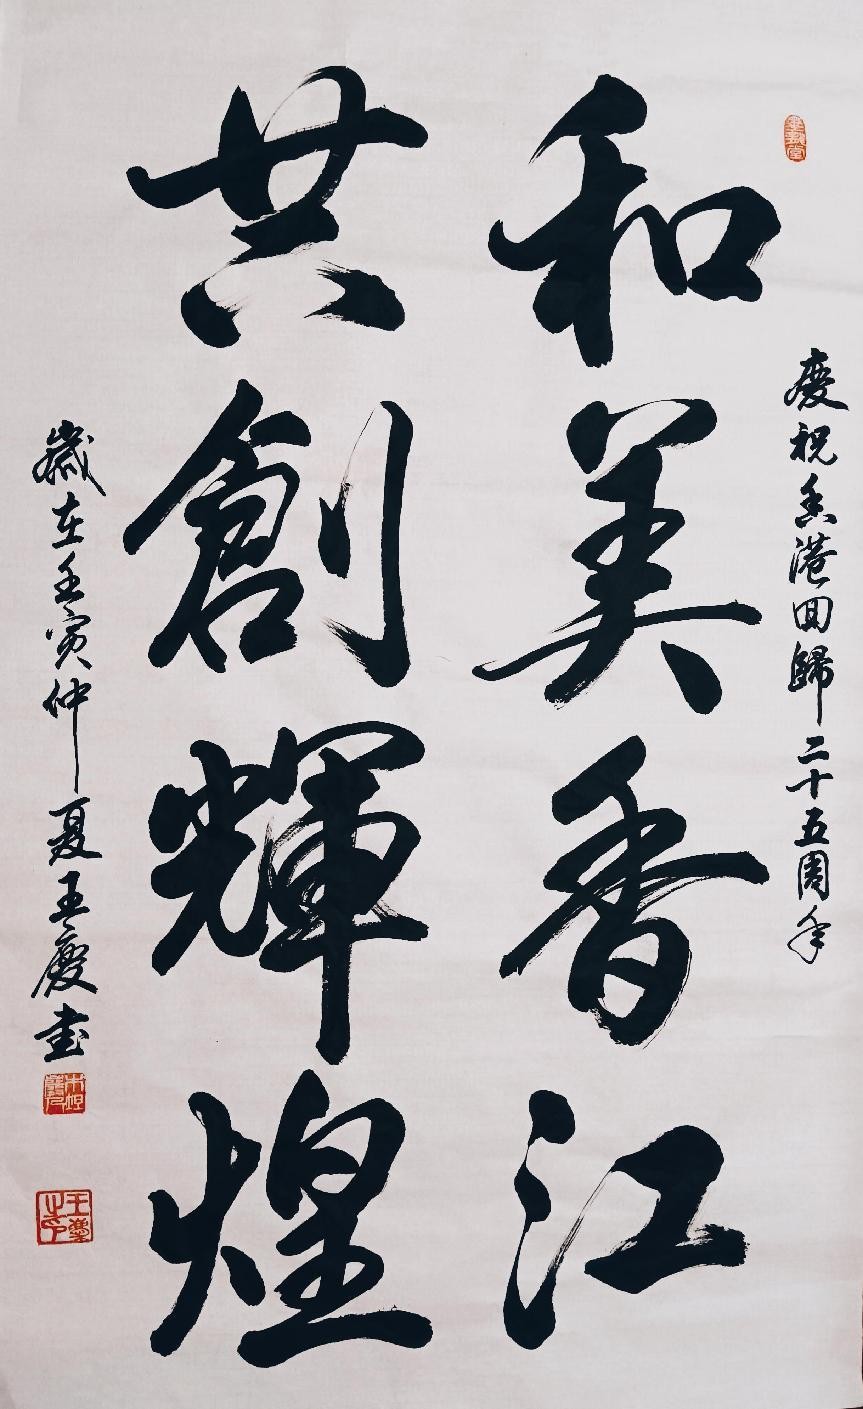 慶祝香港回歸二十五周年
和美香江
共創輝煌
歲在壬寅仲夏王慶書